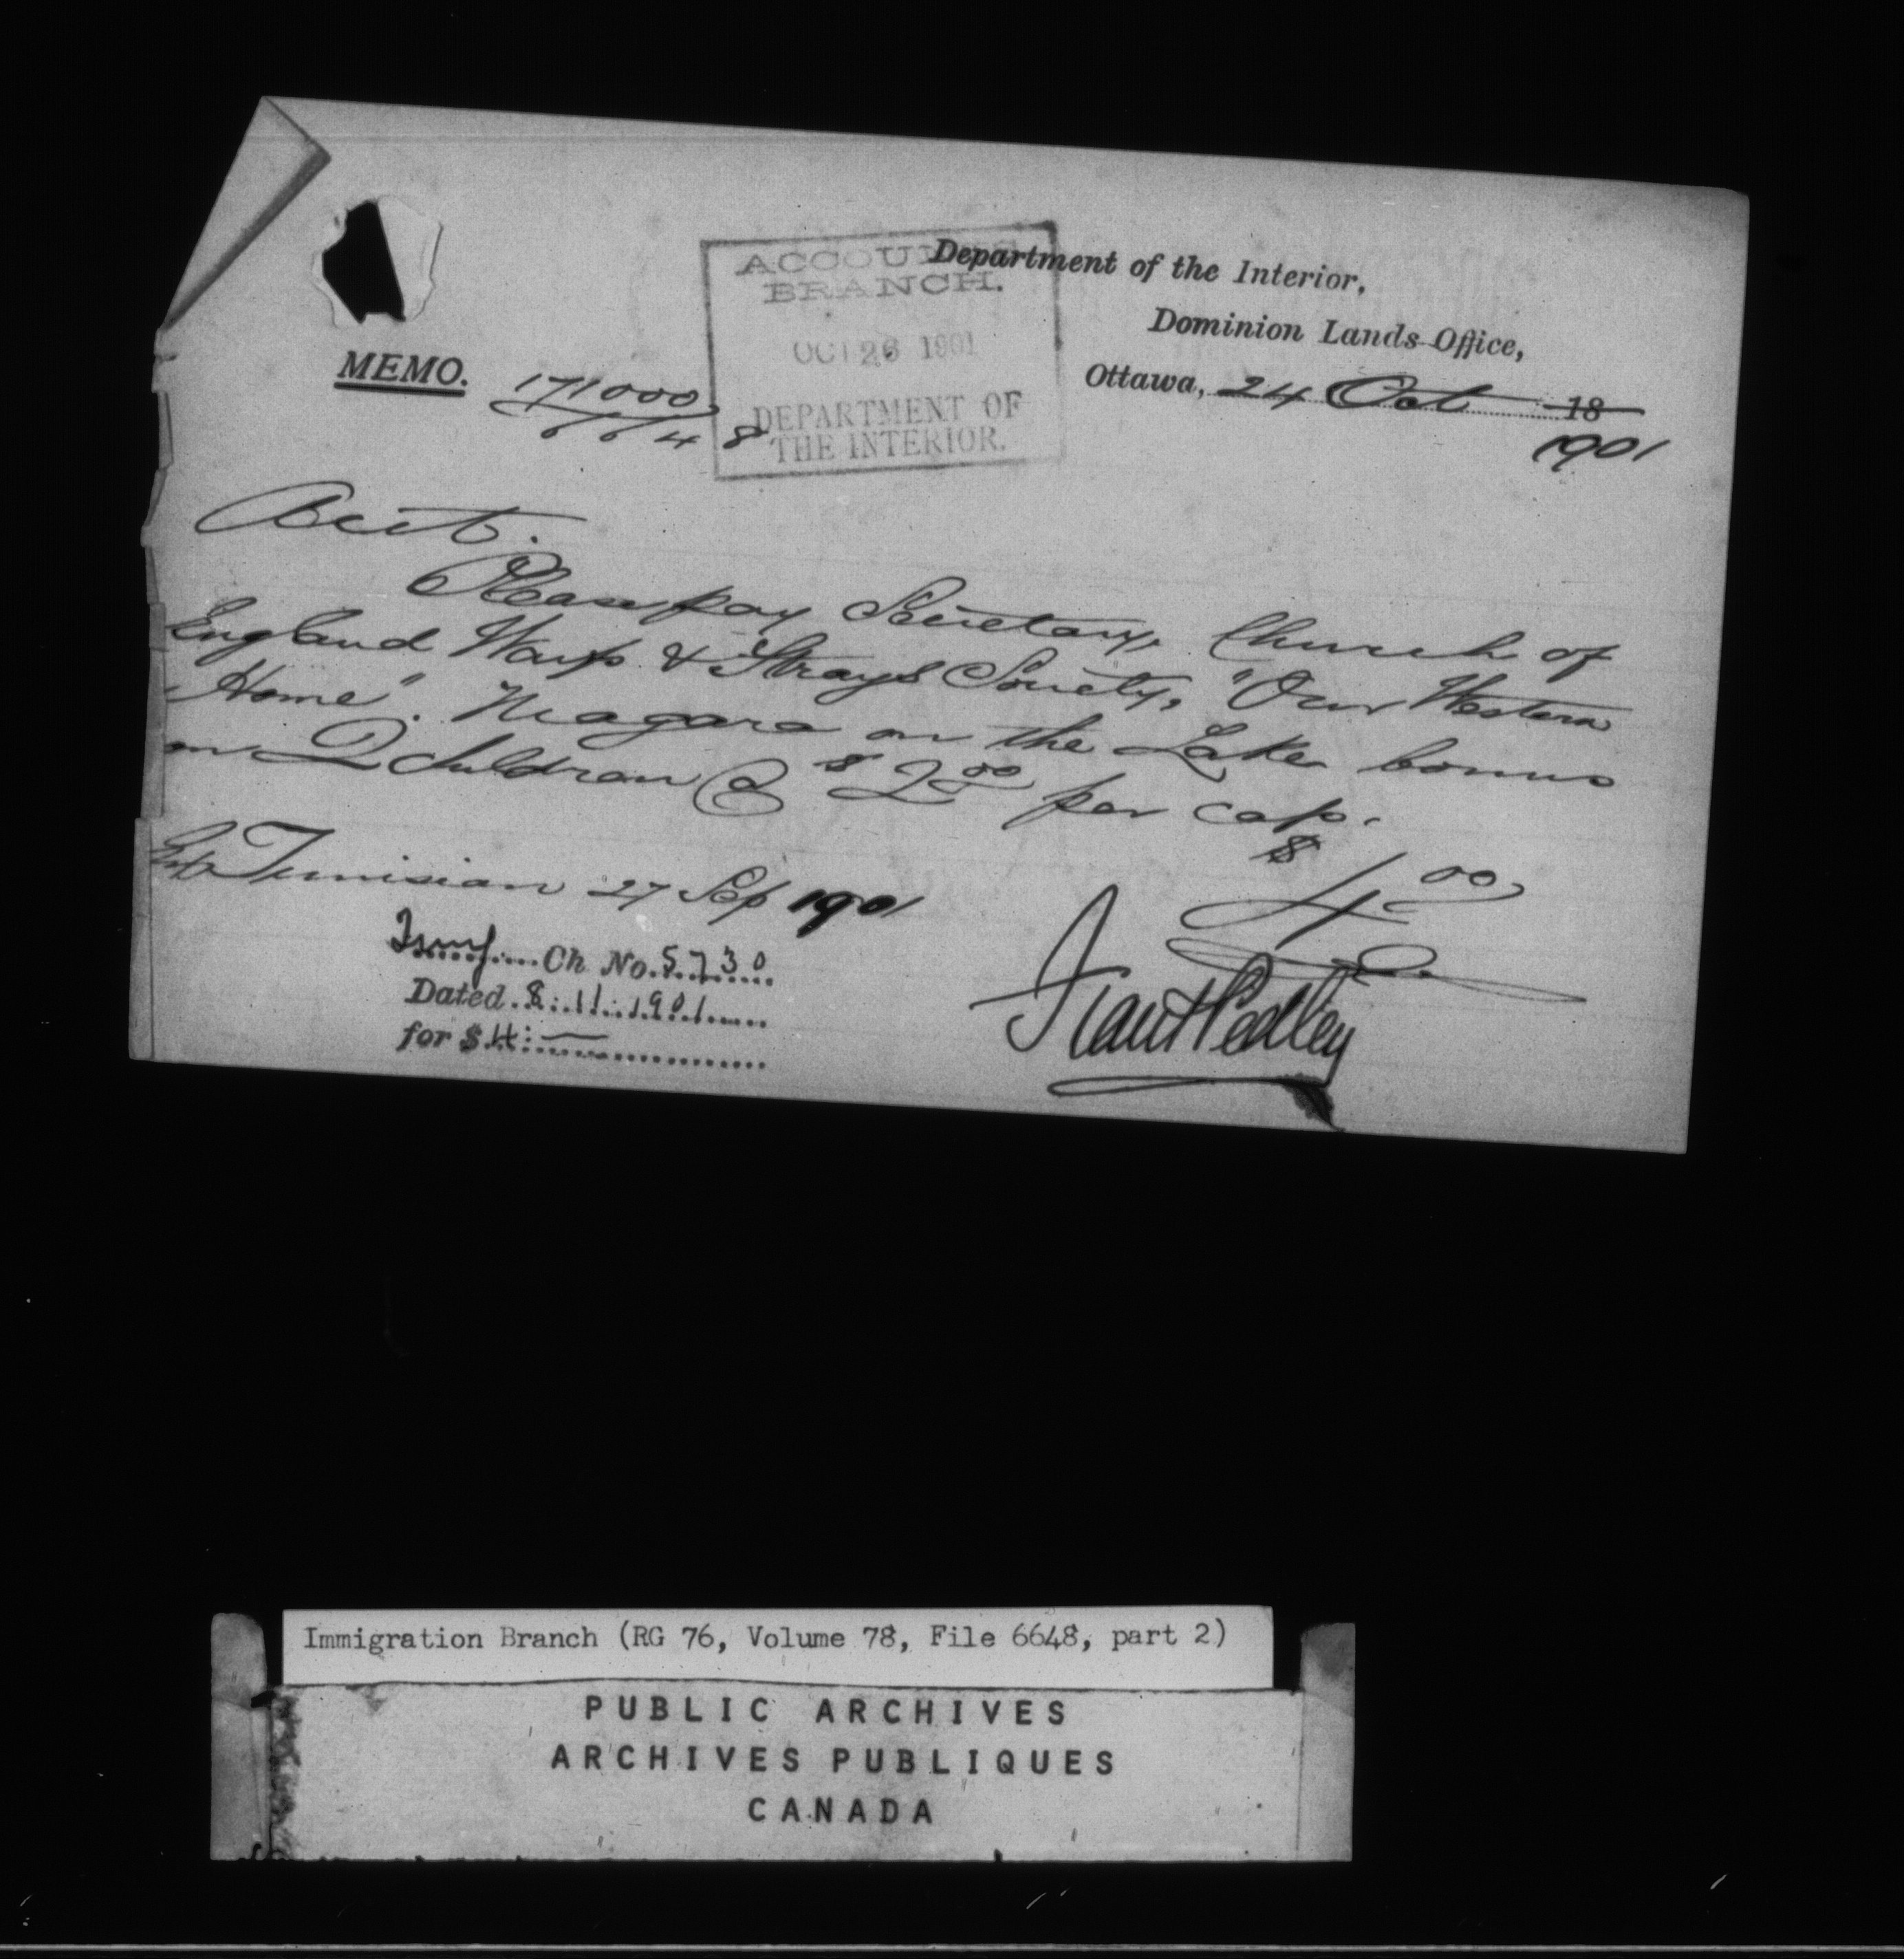 ACCOUNTS
BRANCH.
OCT 26 1901
DEPARTMENT OF
THE INTERIOR.
Department of the Interior,
Dominion Lands Office,
Ottawa, 24 Oct 18
1901
MEMO.
171000
6648
Acct.
Please pay Secretary, Church of
England Waifs & Strays Society, "Our Western
Home". Niagara on the Lake bonus
on 2 children @ $2.00 per cap.
$4.00
Tunisian 27 Sep 1901
Ch No. 5730
Dated 8.11.1901
for $4:—
Frank Pedley
Immigration Branch (RG 76, Volume 78, File 6648, part 2)
PUBLIC ARCHIVES
ARCHIVES PUBLIQUES
CANADA